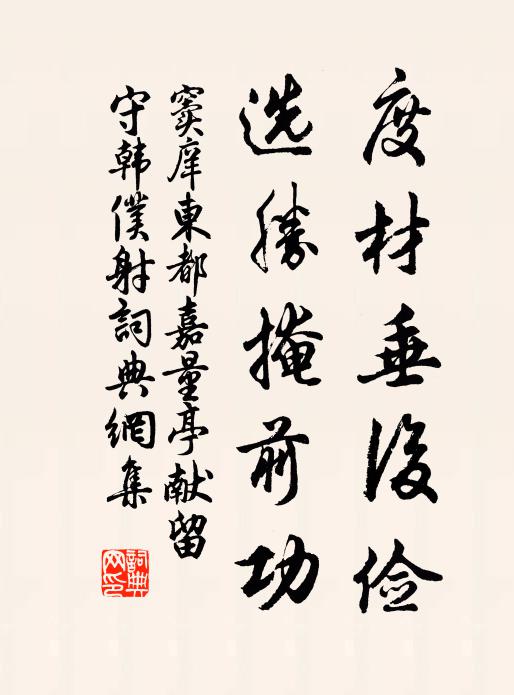 度材垂後俭
选勝掩前功
窦庠東都嘉量亭献留
守韓僕射詞典網集
詞典
网